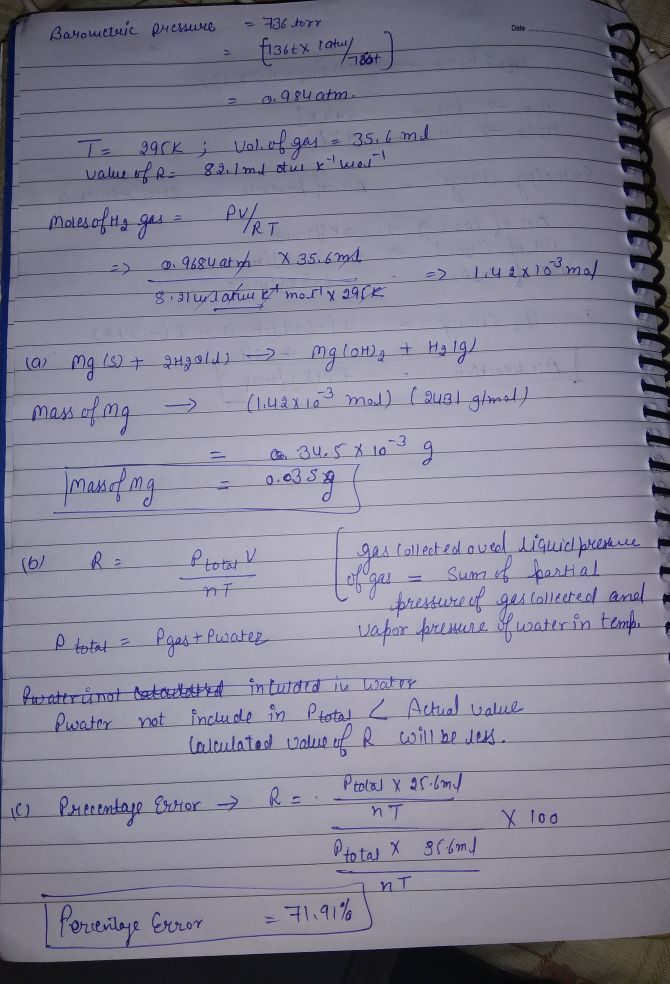 Date
Barometric pressure = 736 torr
= [736t × 1atm/760t]
= 0.984 atm.
T = 295K ; Vol. of gas = 35.6 ml
value of R = 82.1 ml atm K⁻¹ mol⁻¹
Moles of H₂ gas = PV/RT
=> 0.9684 atm × 35.6ml / 8.21 ml atm K⁻¹ mol⁻¹ × 295K => 1.42 × 10⁻³ mol
(a) Mg(s) + 2H₂O(l) → Mg(OH)₂ + H₂(g)
Mass of Mg → (1.42 × 10⁻³ mol) (2431 g/mol)
= 34.5 × 10⁻³ g
Mass of Mg = 0.035 g
(b) R = P total V / nT
[gas collected oved liquid pressure
of gas = Sum of partial
pressure of gas collected and
vapor pressure of water in temp.
P total = Pgas + Pwater
Pwater is not intuded in water
Pwater not include in Ptotal < Actual value
Calculated value of R will be less.
(c) Precentage Error → R = Ptotal × 25.6ml / nT
/ Ptotal × 35.6ml / nT × 100
Percentage Error = 71.91%